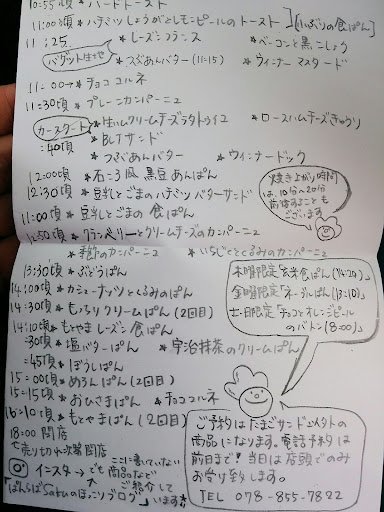 10:55頃 * ハードトースト
11:00頃 * ハチミツしょうがとレモンピールのトースト
][小ぶりの食ぱん]
11:25
バゲット生地
* レーズンフランス * ベーコンと黒こしょう
* つぶあんバター(11:15) * ウィンナーマスタード
11:00→* チョココルネ
11:30頃 * プレーンカンパーニュ
カスクート
:40頃
* 生ハムクリームチーズラタトゥイユ * ロースハムチーズきゅうり
* BLTサンド
* つぶあんバター * ウィンナードック
12:00頃 * 石ころ風黒豆あんぱん
12:30頃 * 豆乳とごまのハチミツバターサンド
11:00頃 * 豆乳とごまの食ぱん
12:50頃 * クランベリーとクリームチーズのカンパーニュ
* 季節のカンパーニュ * いちじくとくるみのカンパーニュ
焼き上がり時間
は、10分~20分
前後することも
ございます。
13:30頃 * ぶどうぱん
14:00頃 * カシューナッツとくるみのぱん
14:30頃 * もっちりクリームぱん(2回目)
14:10頃 * もとやまレーズン食ぱん
:30頃 * 塩バターぱん * 宇治抹茶のクリームぱん
:45頃 * ぼうしぱん
15:00頃 * めろんぱん(2回目)
15:15頃 * おひさまぱん * チョココルネ
16:10頃 * もとやまぱん(2回目)
18:00 閉店
木曜限定「玄米食ぱん(14:20)」
金曜限定「ネーブルぱん(13:10)」
土・日限定「チョコとオレンジピール
のバトン(8:00)」
ご予約はたまごサンド以外の
商品になります。電話予約は
前日まで!当日は店頭でのみ
お受け致します。
TEL 078-855-7822
売り切れ次第閉店
ここに書いていない
インスタ→でも商品など
ご紹介して
「ぱんらぼSakuのほっこりブログ」います